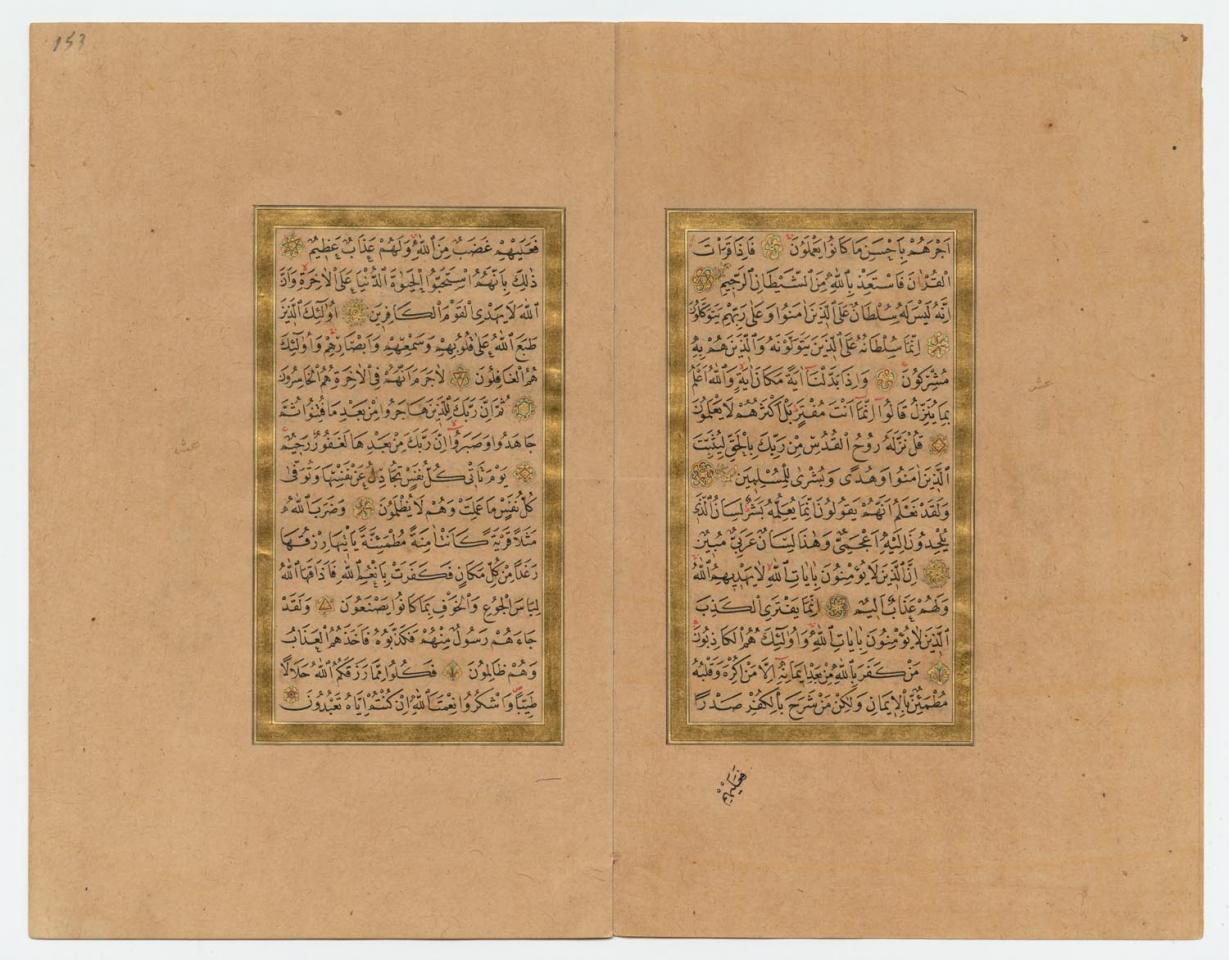 اَجْرَهُمْ بِاَحْسَنِ مَا كَانُوا يَعْمَلُونَ فَاِذَا قَرَاْتَ
الْقُرْاٰنَ فَاسْتَعِذْ بِاللّٰهِ مِنَ الشَّيْطَانِ الرَّجِيمِ
اِنَّهُ لَيْسَ لَهُ سُلْطَانٌ عَلَى الَّذِينَ اٰمَنُوا وَعَلٰى رَبِّهِمْ يَتَوَكَّلُونَ
اِنَّمَا سُلْطَانُهُ عَلَى الَّذِينَ يَتَوَلَّوْنَهُ وَالَّذِينَ هُمْ بِهِ
مُشْرِكُونَ وَاِذَا بَدَّلْنَا اٰيَةً مَكَانَ اٰيَةٍ وَاللّٰهُ اَعْلَمُ
بِمَا يُنَزِّلُ قَالُوا اِنَّمَا اَنْتَ مُفْتَرٍ بَلْ اَكْثَرُهُمْ لَا يَعْلَمُونَ
قُلْ نَزَّلَهُ رُوحُ الْقُدُسِ مِنْ رَبِّكَ بِالْحَقِّ لِيُثَبِّتَ
الَّذِينَ اٰمَنُوا وَهُدًى وَبُشْرٰى لِلْمُسْلِمِينَ
وَلَقَدْ نَعْلَمُ اَنَّهُمْ يَقُولُونَ اِنَّمَا يُعَلِّمُهُ بَشَرٌ لِسَانُ الَّذِي
يُلْحِدُونَ اِلَيْهِ اَعْجَمِيٌّ وَهٰذَا لِسَانٌ عَرَبِيٌّ مُبِينٌ
اِنَّ الَّذِينَ لَا يُؤْمِنُونَ بِاٰيَاتِ اللّٰهِ لَا يَهْدِيهِمُ اللّٰهُ
وَلَهُمْ عَذَابٌ اَلِيمٌ اِنَّمَا يَفْتَرِي الْكَذِبَ
الَّذِينَ لَا يُؤْمِنُونَ بِاٰيَاتِ اللّٰهِ وَاُولٰئِكَ هُمُ الْكَاذِبُونَ
مَنْ كَفَرَ بِاللّٰهِ مِنْ بَعْدِ اِيمَانِهِ اِلَّا مَنْ اُكْرِهَ وَقَلْبُهُ
مُطْمَئِنٌّ بِالْاِيمَانِ وَلٰكِنْ مَنْ شَرَحَ بِالْكُفْرِ صَدْرًا
فَعَلَيْهِمْ
عشر
153
فَعَلَيْهِمْ غَضَبٌ مِنَ اللّٰهِ وَلَهُمْ عَذَابٌ عَظِيمٌ
ذٰلِكَ بِاَنَّهُمُ اسْتَحَبُّوا الْحَيٰوةَ الدُّنْيَا عَلَى الْاٰخِرَةِ وَاَنَّ
اللّٰهَ لَا يَهْدِي الْقَوْمَ الْكَافِرِينَ اُولٰئِكَ الَّذِينَ
طَبَعَ اللّٰهُ عَلٰى قُلُوبِهِمْ وَسَمْعِهِمْ وَاَبْصَارِهِمْ وَاُولٰئِكَ
هُمُ الْغَافِلُونَ لَا جَرَمَ اَنَّهُمْ فِي الْاٰخِرَةِ هُمُ الْخَاسِرُونَ
ثُمَّ اِنَّ رَبَّكَ لِلَّذِينَ هَاجَرُوا مِنْ بَعْدِ مَا فُتِنُوا ثُمَّ
جَاهَدُوا وَصَبَرُوا اِنَّ رَبَّكَ مِنْ بَعْدِهَا لَغَفُورٌ رَحِيمٌ
يَوْمَ تَاْتِي كُلُّ نَفْسٍ تُجَادِلُ عَنْ نَفْسِهَا وَتُوَفّٰى
كُلُّ نَفْسٍ مَا عَمِلَتْ وَهُمْ لَا يُظْلَمُونَ وَضَرَبَ اللّٰهُ
مَثَلًا قَرْيَةً كَانَتْ اٰمِنَةً مُطْمَئِنَّةً يَاْتِيهَا رِزْقُهَا
رَغَدًا مِنْ كُلِّ مَكَانٍ فَكَفَرَتْ بِاَنْعُمِ اللّٰهِ فَاَذَاقَهَا اللّٰهُ
لِبَاسَ الْجُوعِ وَالْخَوْفِ بِمَا كَانُوا يَصْنَعُونَ وَلَقَدْ
جَاءَهُمْ رَسُولٌ مِنْهُمْ فَكَذَّبُوهُ فَاَخَذَهُمُ الْعَذَابُ
وَهُمْ ظَالِمُونَ فَكُلُوا مِمَّا رَزَقَكُمُ اللّٰهُ حَلَالًا
طَيِّبًا وَاشْكُرُوا نِعْمَتَ اللّٰهِ اِنْ كُنْتُمْ اِيَّاهُ تَعْبُدُونَ
عشر